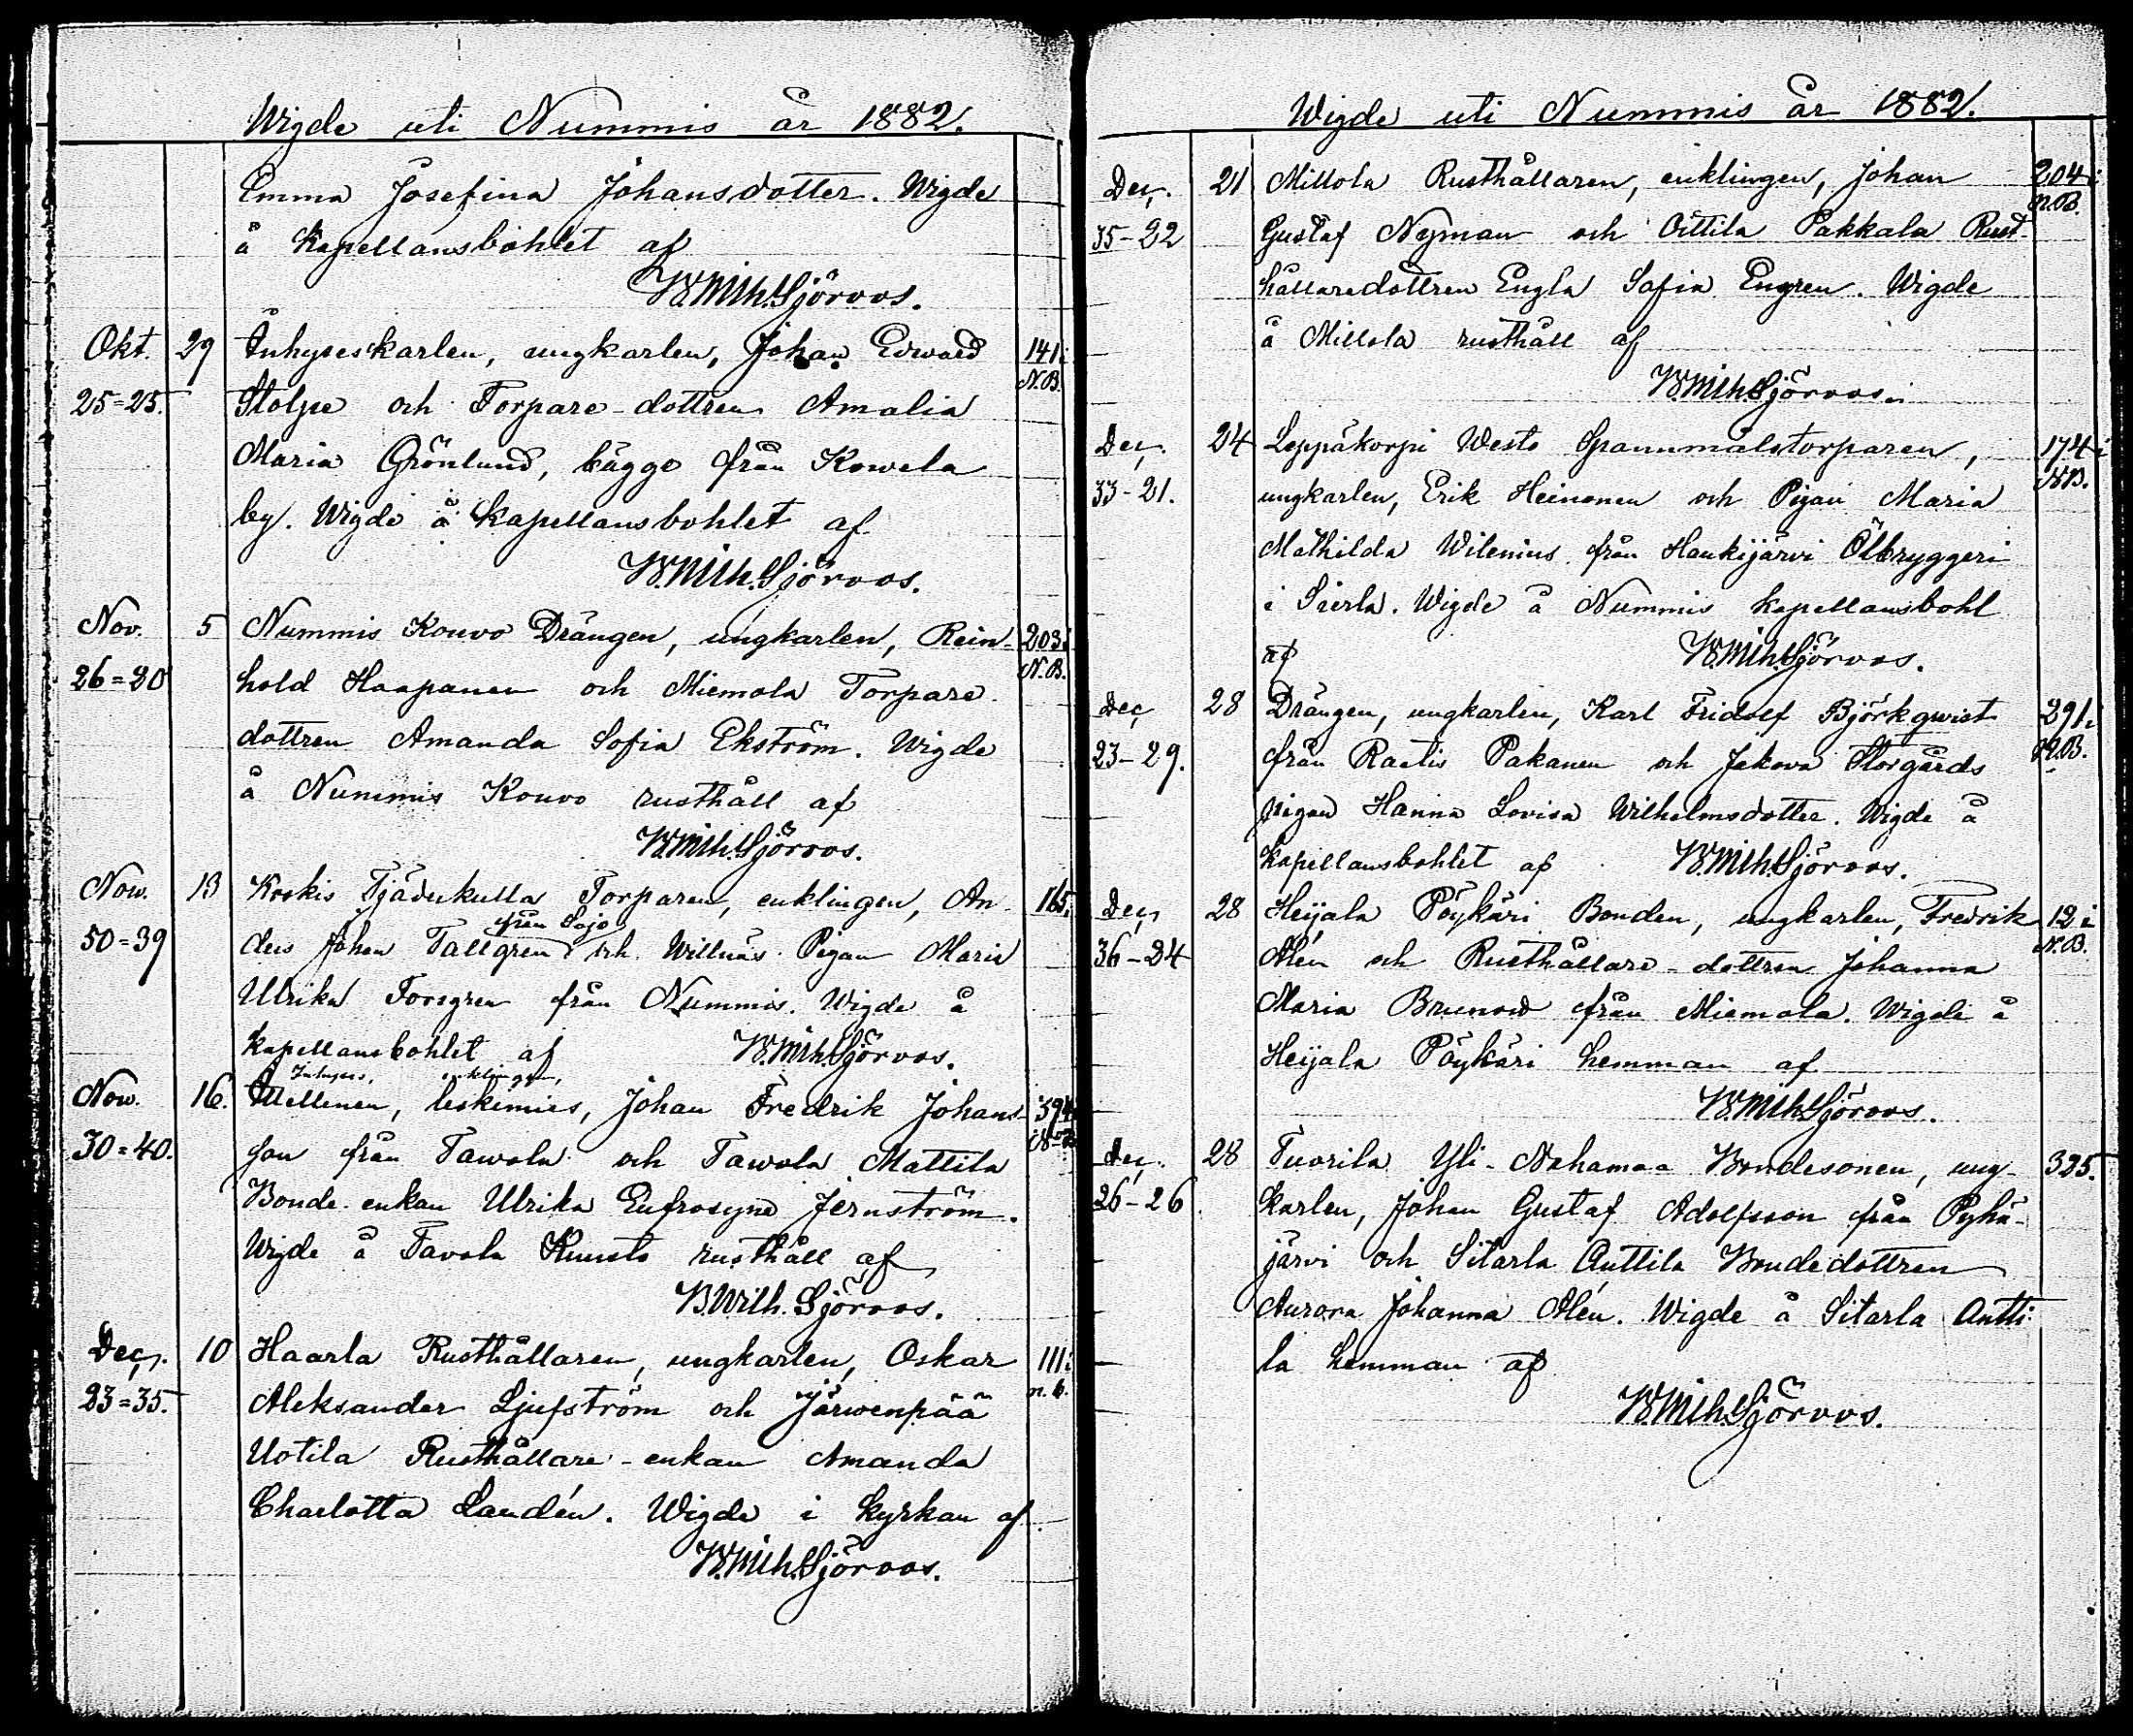 Wigde uti Nummis år 1882.
Emma Josefina Johansdotter. Wigde
å Kapellansbohlet af
B. Wilh. Sjöroos.
Okt. 29 Inhyseskarlen, ungkarlen, Johan Edward 141 i
25=25. Stolpe och Torpare-dottren Amalia N.B.
Maria Grönlund, bägge från Kowela
by. Wigde å kapellansbohlet af
B. Wilh. Sjöroos.
Nov. 5 Nummis Kouvo Drängen, ungkarlen, Rein- 203 i
26=20 hold Haapanen och Miemola Torpare N.B.
dottren Amanda Sofia Ekström. Wigde
å Nummis Kouvo rusthåll af
B. Wilh. Sjöroos.
Now. 13 Koskis Tjäderkulla Torparen, enklingen, An- 165.
från Sojo
50=39 ders Johan Tallgren och Willnäs Pigan Maria
Ulrika Forsgren från Nummis. Wigde å
kapellansbohlet af B. Wilh. Sjöroos.
Inhyses, enklingen,
Now. 16. Itellinen, leskimies, Johan Fredrik Johans- 394
30=40. son från Tawola och Tawola Mattila
Bonde-enkan Ulrika Eufrosyne Jernström.
Wigde å Tavola Knuuts rusthåll af
B. Wilh. Sjöroos.
Dec. 10 Haarla Rusthållaren, ungkarlen, Oskar 111 i
23=35. Aleksander Ljufström och Järwenpää n.b.
Uotila Rusthållare-enkan Amanda
Charlotta Landén. Wigde i kyrkan af
B. Wilh. Sjöroos.
Wigde uti Nummis år 1882.
Dec. 21 Millola Rusthållaren, enklingen, Johan 204 i
35-22 Gustaf Nyman och Oittila Pakkala Rust- N.B.
hållaredottren Engla Sofia Engren. Wigde
å Millola rusthåll af
B. Wilh. Sjöroos.
Dec. 24 Leppäkorpi Westo Spannmålstorparen, 174 i
33-21. ungkarlen, Erik Heinonen och Pigan Maria N.B.
Mathilda Wilenius från Haukijärvi Ölbryggeri
i Sierla. Wigde å Nummis kapellansbohl
af B. Wilh. Sjöroos.
Dec 28 Drängen, ungkarlen, Karl Fridolf Björkqwist 291 i
23-29. från Raatis Pakanen och Jakova Storgårds N.B.
pigan Hanna Lovisa Wilhelmsdotter. Wigde å
kapellansbohlet af B. Wilh. Sjöroos.
Dec 28 Heijala Pöykäri Bonden, ungkarlen, Fredrik 12 i
36-24 Alén och Rusthållare-dottren Johanna N.B.
Maria Brunow från Miemola. Wigde å
Heijala Pöykäri hemman af
B. Wilh. Sjöroos.
Dec. 28 Tuorila Yli-Nahamaa Bondesonen, ung- 325.
26-26. karlen, Johan Gustaf Adolfsson från Pyhä-
järvi och Sitarla Anttila Bondedottren
Aurora Johanna Alén. Wigde å Sitarla Antti-
la hemman af
B. Wilh. Sjöroos.